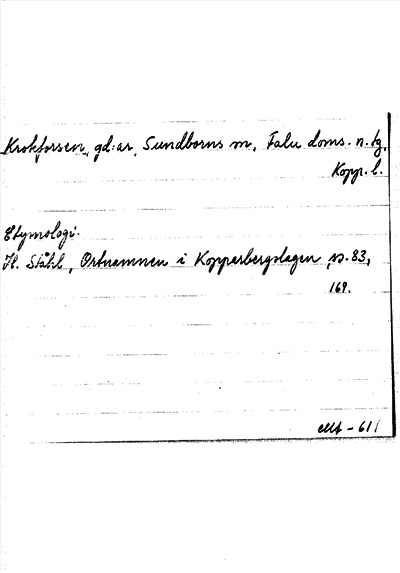 Krokforsen, gd:ar, Sundborns sn, Falu doms. n. tg,
Kopp. l.
Etymologi:
H. Ståhl, Ortnamnen i Kopparbergslagen, s. 83,
169.
-61